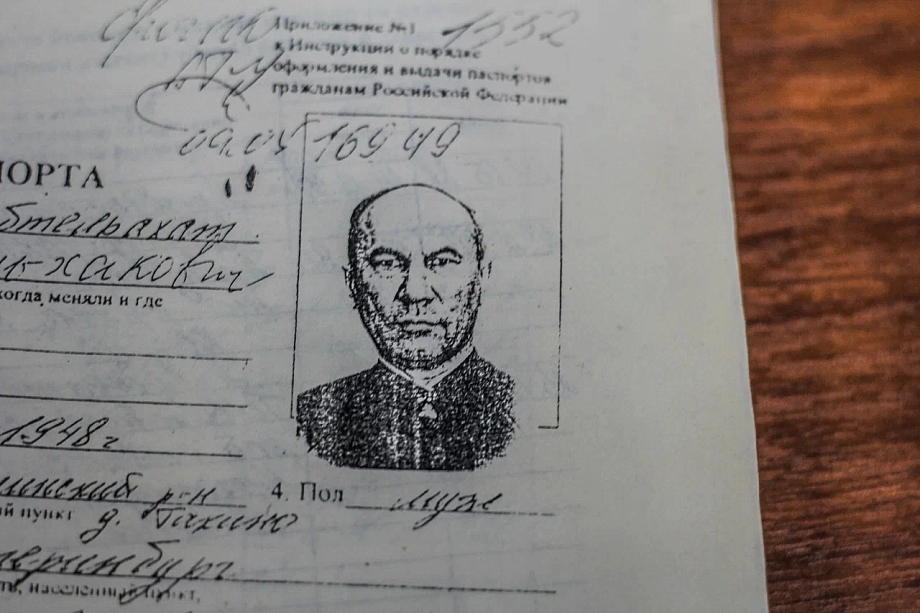 Срочно 1552
Приложение №1
к Инструкции о порядке
оформления и выдачи паспортов
гражданам Российской Федерации
09.05 169 49
ПОРТА
бтельрахат
л-хакович
когда меняли и где
1948 г
4. Пол муж
инский р-н
ый пункт д. Тахино
теринбург
ть, населенный пункт,